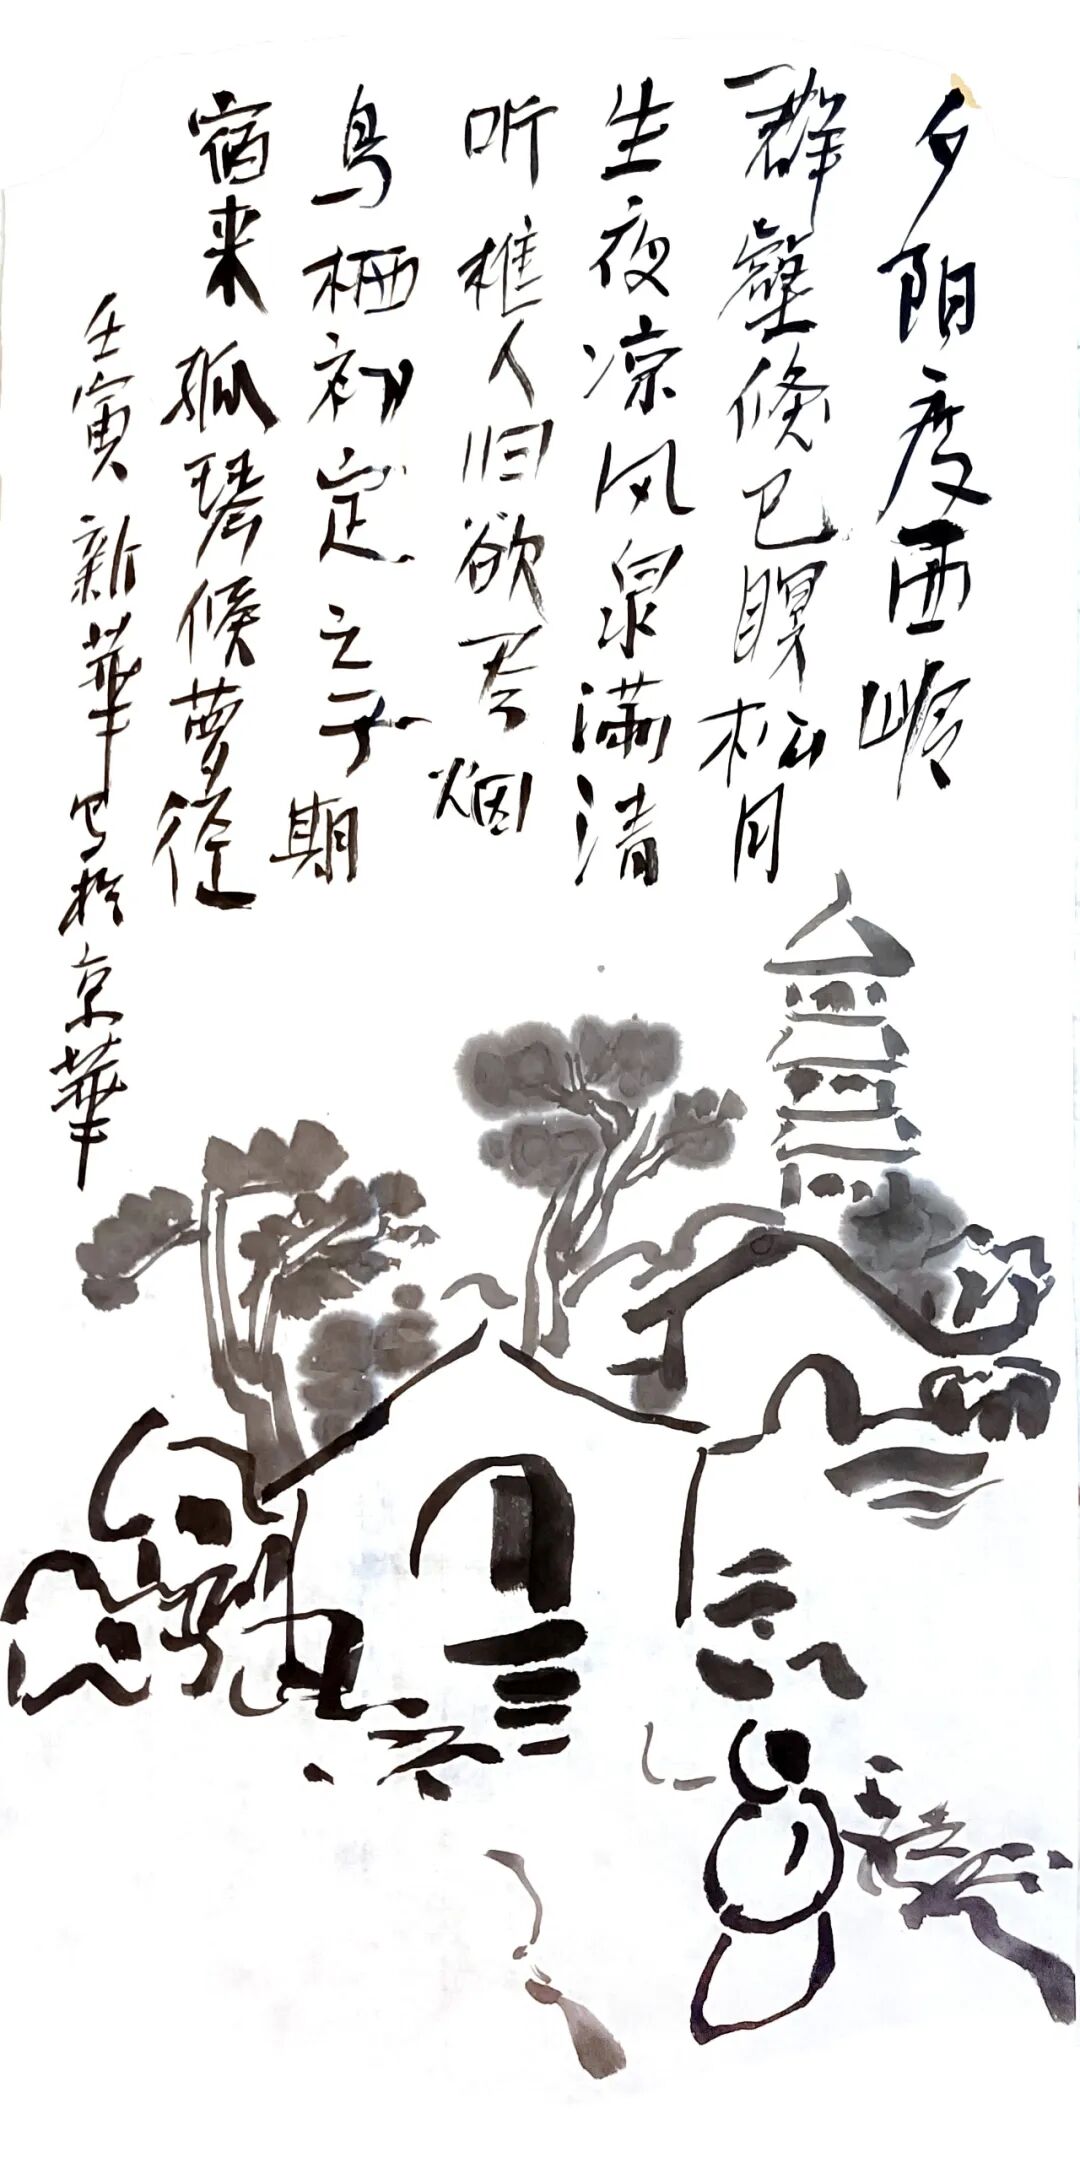 夕阳度西岭
群壑倏已瞑松月
生夜凉风泉满清
听樵人归欲尽烟
鸟栖初定之子期
宿来孤琴候萝径
壬寅 新華写於京華